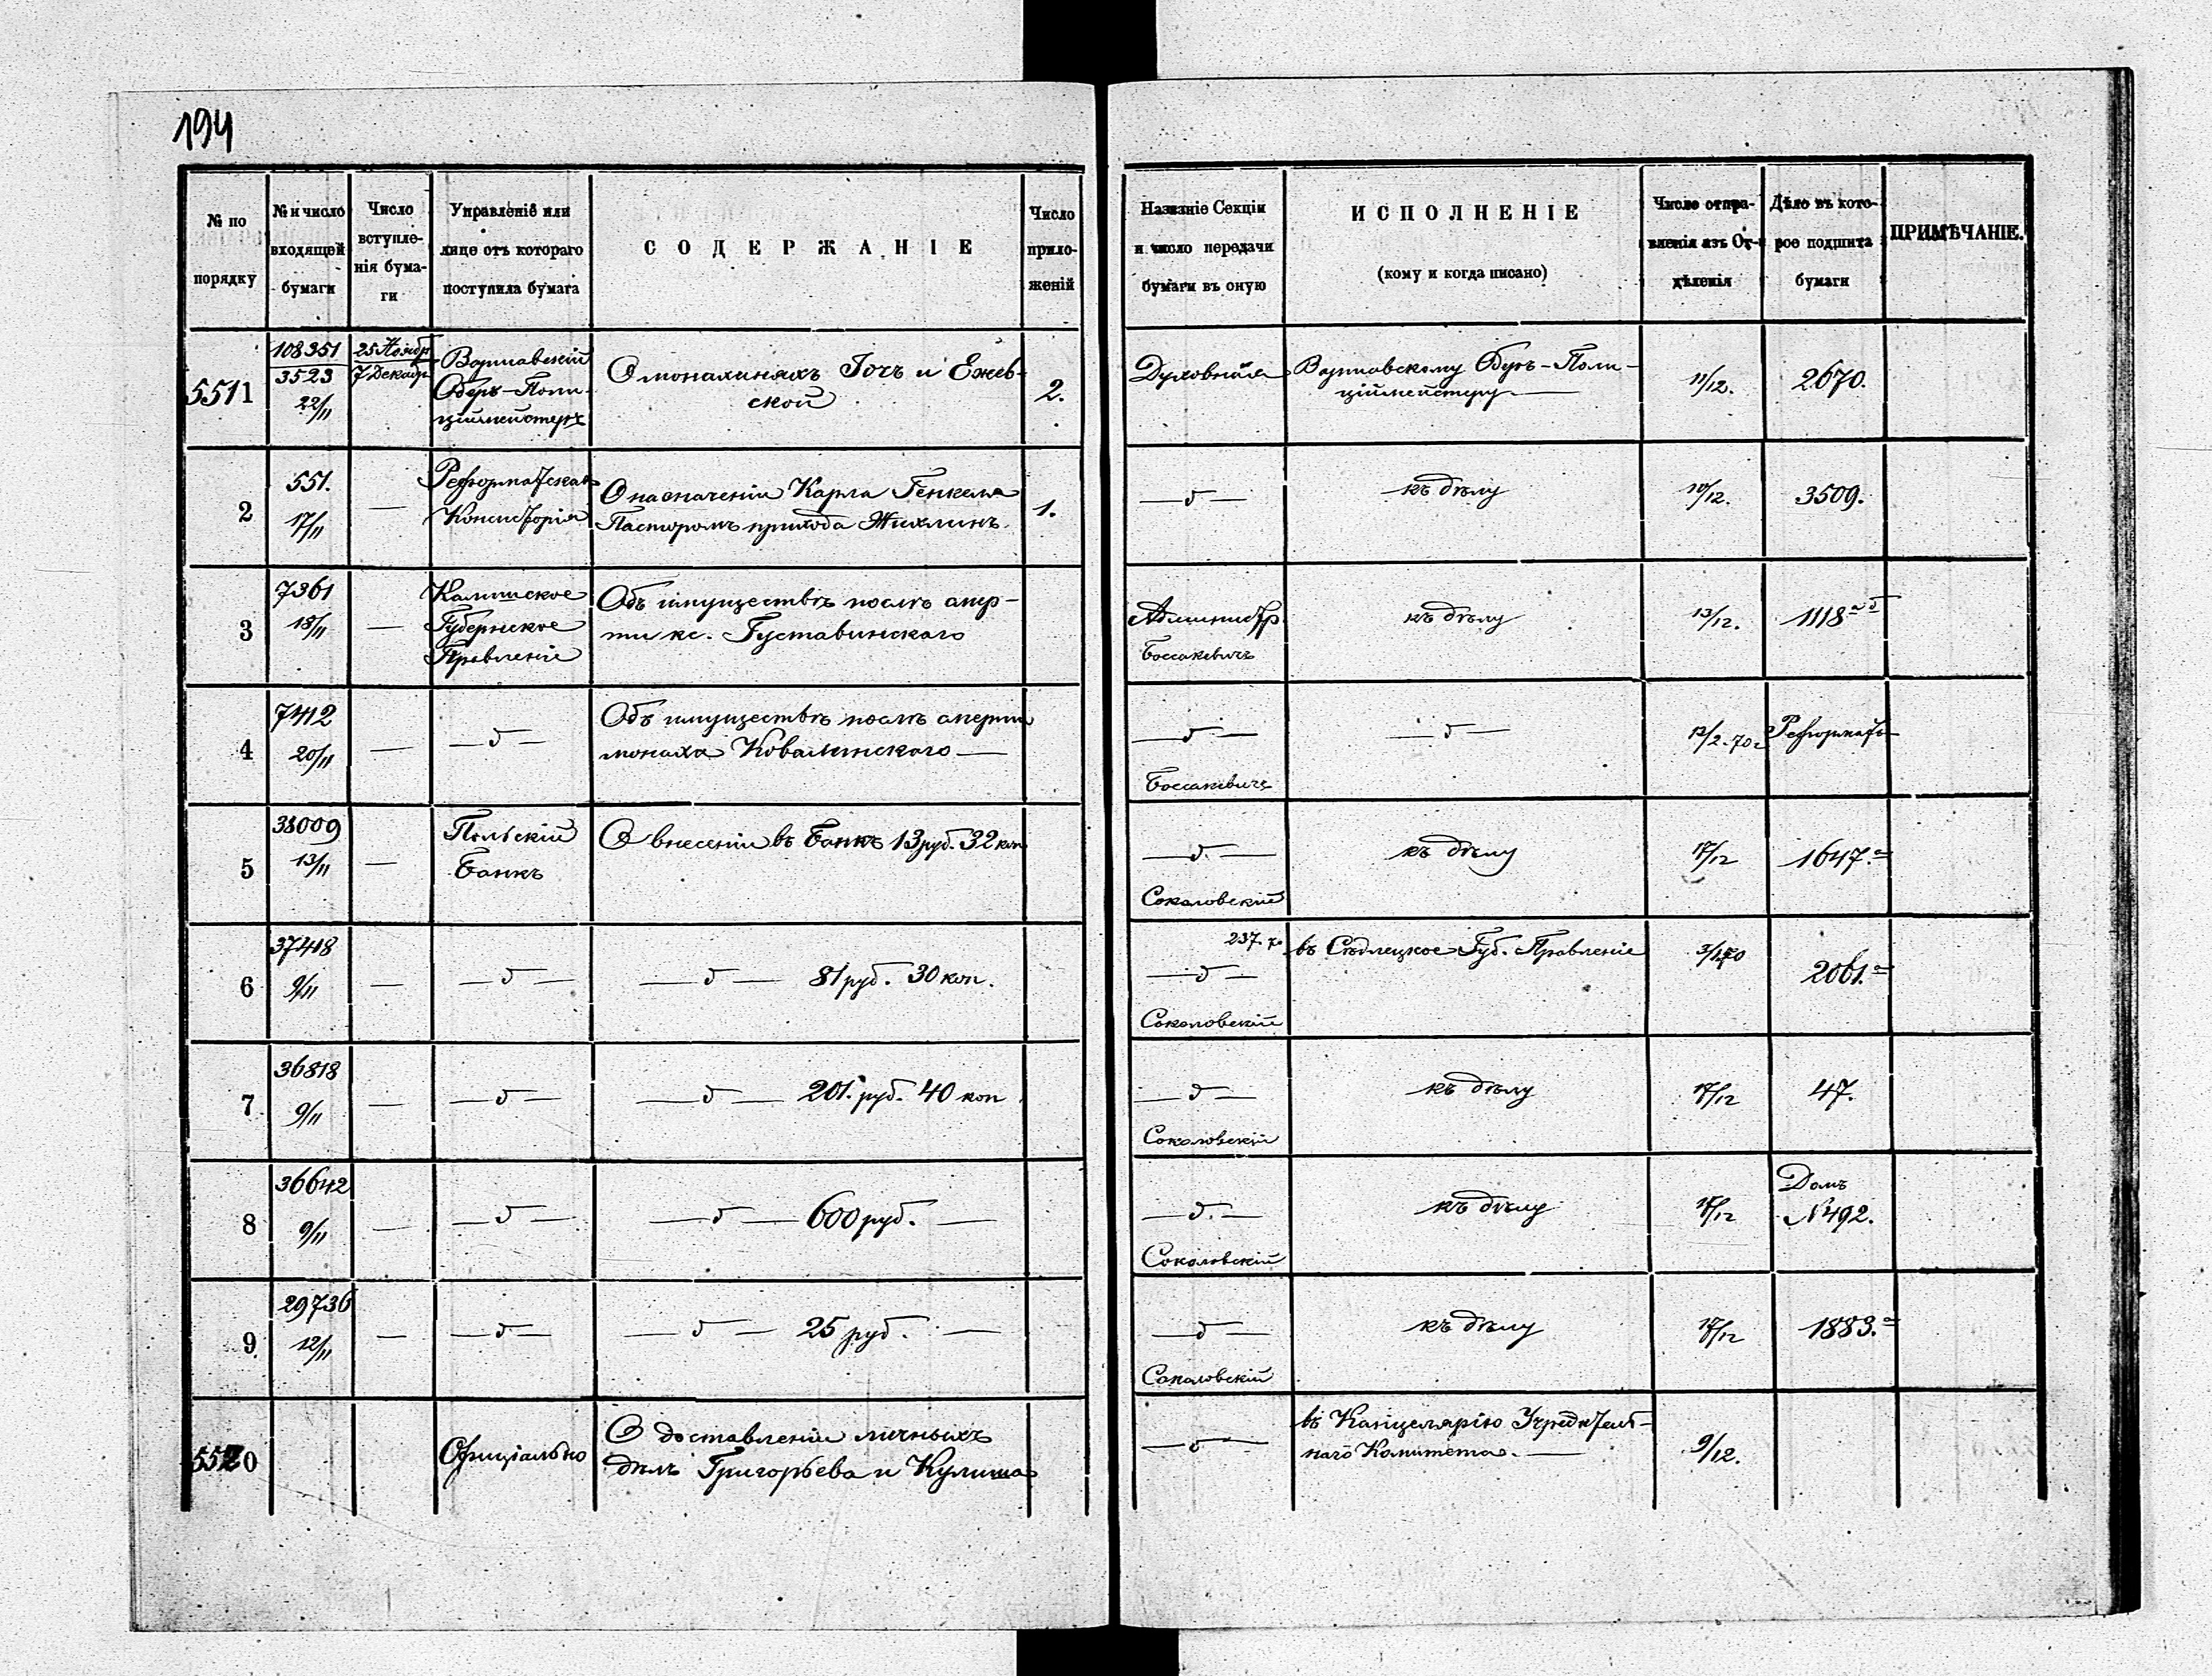 194
№ по порядку
№ и число входящей бумаги
Число вступле-нія бума-ги
Управленіе или лице отъ котораго поступила бумага
СОДЕРЖАНІЕ
Число прило-женій
Названіе Секціи и число передачи бумаги въ оную
ИСПОЛНЕНІЕ
(кому и когда писано)
Число отпра-вленія изъ От-дѣленія
Дѣло въ кото-рое подшита бумаги
ПРИМѢЧАНІЕ.
5511
108351
3523
22/11
25 Ноябр
7 Декабр
Варшавскій
Оберъ-Поли-
ціймейстеръ
О монахиняхъ Гочъ и Ежев-
ской
2.
Духовная
Варшавскому Оберъ-Поли-
ціймейстеру —
11/12.
2670.
2
551.
17/11
—
Реформатская
Консисторія
О назначеніи Карла Генкеля
Пасторомъ прихода Жихлинъ.
1.
— д —
къ дѣлу
10/12.
3509.
3
7361
18/11
—
Калишское
Губернское
Правленіе
Объ имуществѣ послѣ смер-
ти кс. Густавинскаго
Администр
Боссакевичъ
къ дѣлу
13/12.
1118 а б
4
7412
20/11
—
— д —
Объ имуществѣ послѣ смерти
монаха Ковалинскаго —
— д —
Боссакевичъ
— д —
12/2. 70 г
Реформатъ
5
38009
13/11
—
Польскій
Банкъ
О внесеніи въ Банкъ 13 руб. 32 коп
— д. —
Соколовскій
къ дѣлу
17/12
1647. а
6
37418
9/11
—
— д —
— д — 81 руб. 30 коп.
237. 70
— д —
Соколовскій
въ Сѣдлецкое Губ. Правленіе
3/1 70
2061. а
7
36818
9/11
—
— д —
— д — 201. руб. 40 коп
— д —
Соколовскій
къ дѣлу
17/12
47.
8
36642
9/11
—
— д —
— д — 600 руб. —
— д. —
Соколовскій
къ дѣлу
17/12
Домъ
N 492.
9
29736
12/11
—
— д —
— д — 25 руб. —
— д —
Соколовскій
къ дѣлу
17/12
1883. а
5520
Офиціально
О доставленіи личныхъ
дѣлъ Григорьева и Кулиша
— д —
въ Канцелярію Учредитель-
наго Комитета. —
9/12.